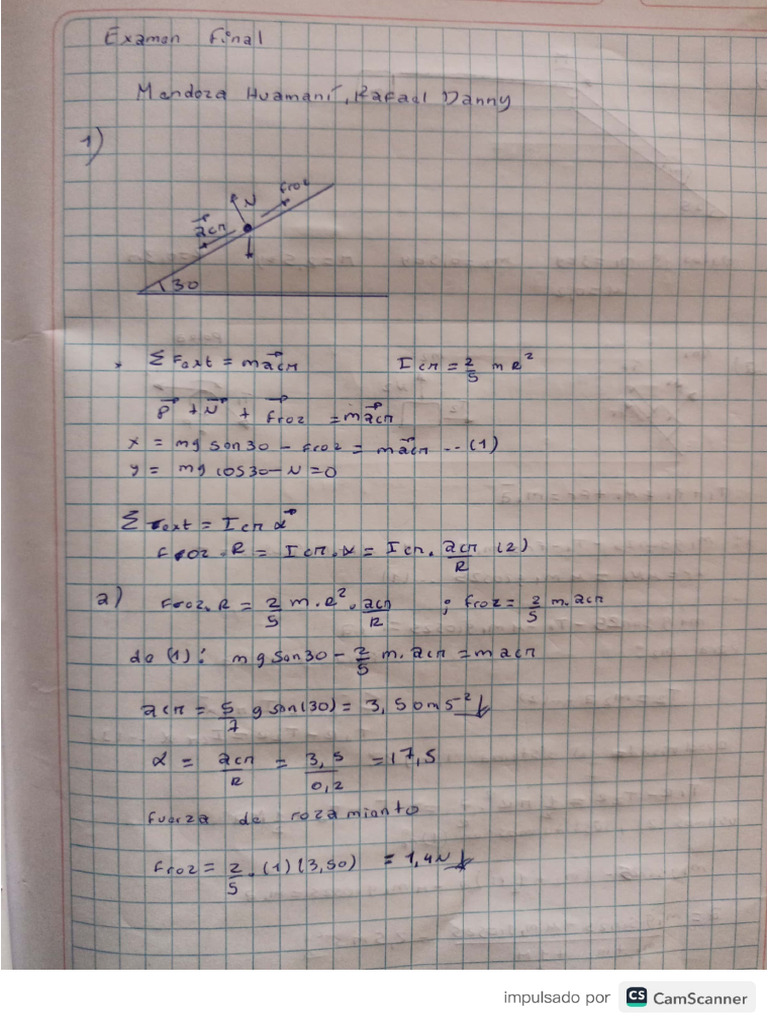 Examen Final
Mendoza Huamaní, Rafael Danny
1)
froz
N
acm
30
Σ Fext = m acm
Icm = 2/5 m R²
P + N + froz = m acm
x = mg sen30 - froz = m acm -- (1)
y = mg cos30 - N = 0
Σ τext = Icm α
froz . R = Icm . α = Icm . acm/R (2)
a) froz . R = 2/5 m . R² . acm/R ; froz = 2/5 m . acm
de (1): mg Sen30 - 2/5 m . acm = m acm
acm = 5/7 g sen(30) = 3,50 ms⁻²
α = acm/R = 3,5/0,2 = 17,5
fuerza de rozamiento
froz = 2/5 . (1) (3,50) = 1,4N
impulsado por CS CamScanner